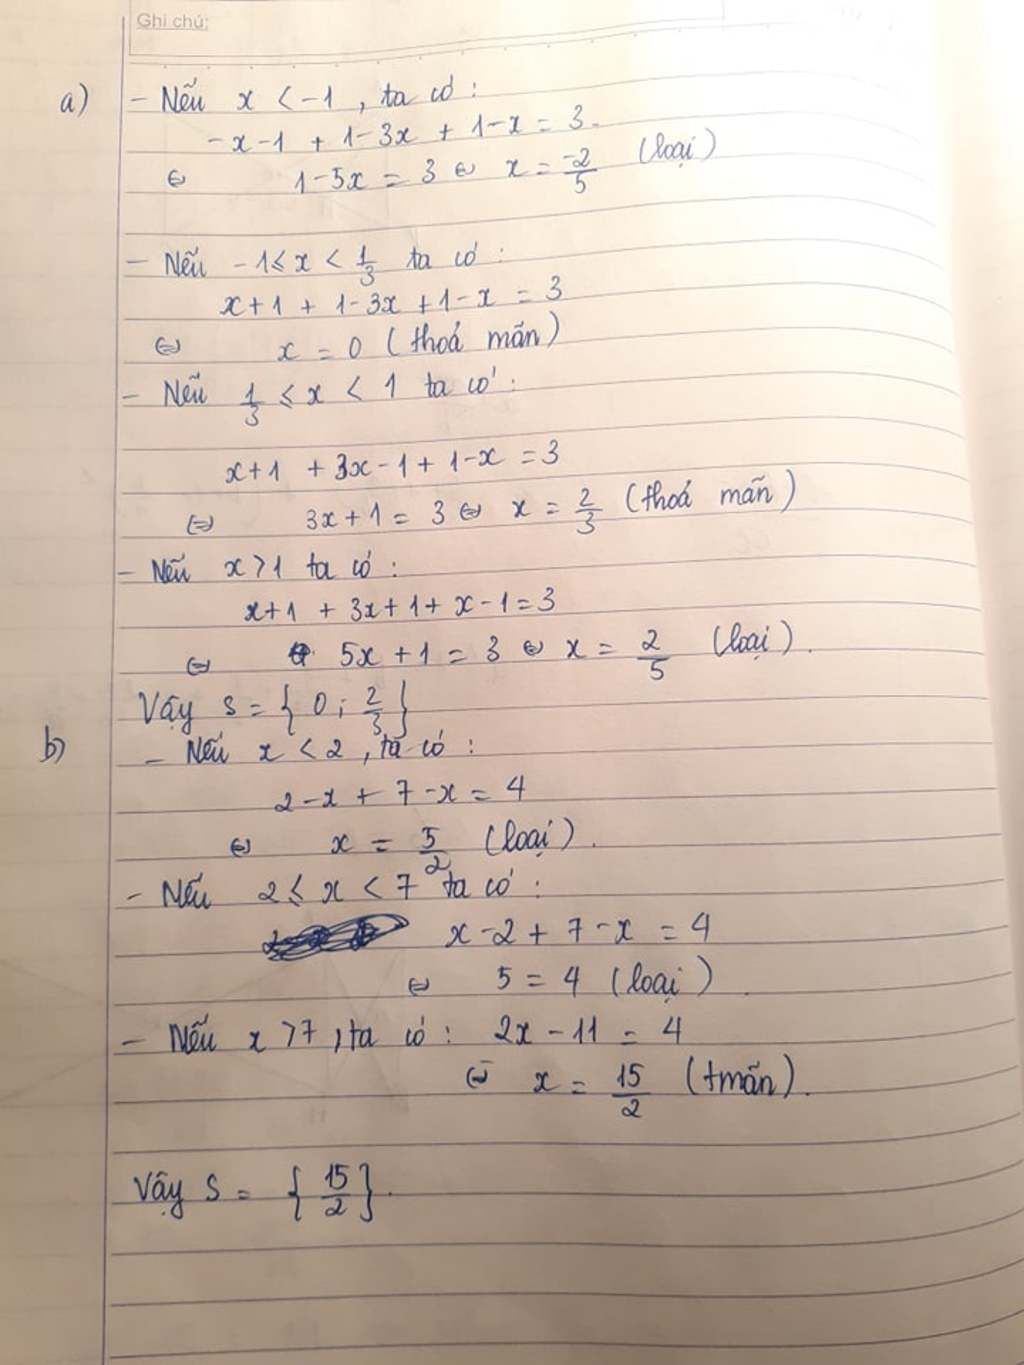 Ghi chú:
a) - Nếu x < -1, ta có:
-x-1 + 1-3x + 1-x = 3.
⇔ 1-5x = 3 ⇔ x = -2/5 (loại)
- Nếu -1 ≤ x < 1/3 ta có:
x+1 + 1-3x + 1-x = 3
⇔ x = 0 (thoả mãn)
- Nếu 1/3 ≤ x < 1 ta có:
x+1 + 3x-1 + 1-x = 3
⇔ 3x+1 = 3 ⇔ x = 2/3 (thoả mãn)
- Nếu x > 1 ta có:
x+1 + 3x+1 + x-1 = 3
⇔ 5x+1 = 3 ⇔ x = 2/5 (loại).
Vậy S = { 0; 2/3 }
b) - Nếu x < 2, ta có:
2-x + 7-x = 4
⇔ x = 5/2 (loại).
- Nếu 2 ≤ x < 7 ta có:
x-2 + 7-x = 4
⇔ 5 = 4 (loại).
- Nếu x > 7, ta có: 2x - 11 = 4
⇔ x = 15/2 (tmãn).
Vậy S = { 15/2 }.